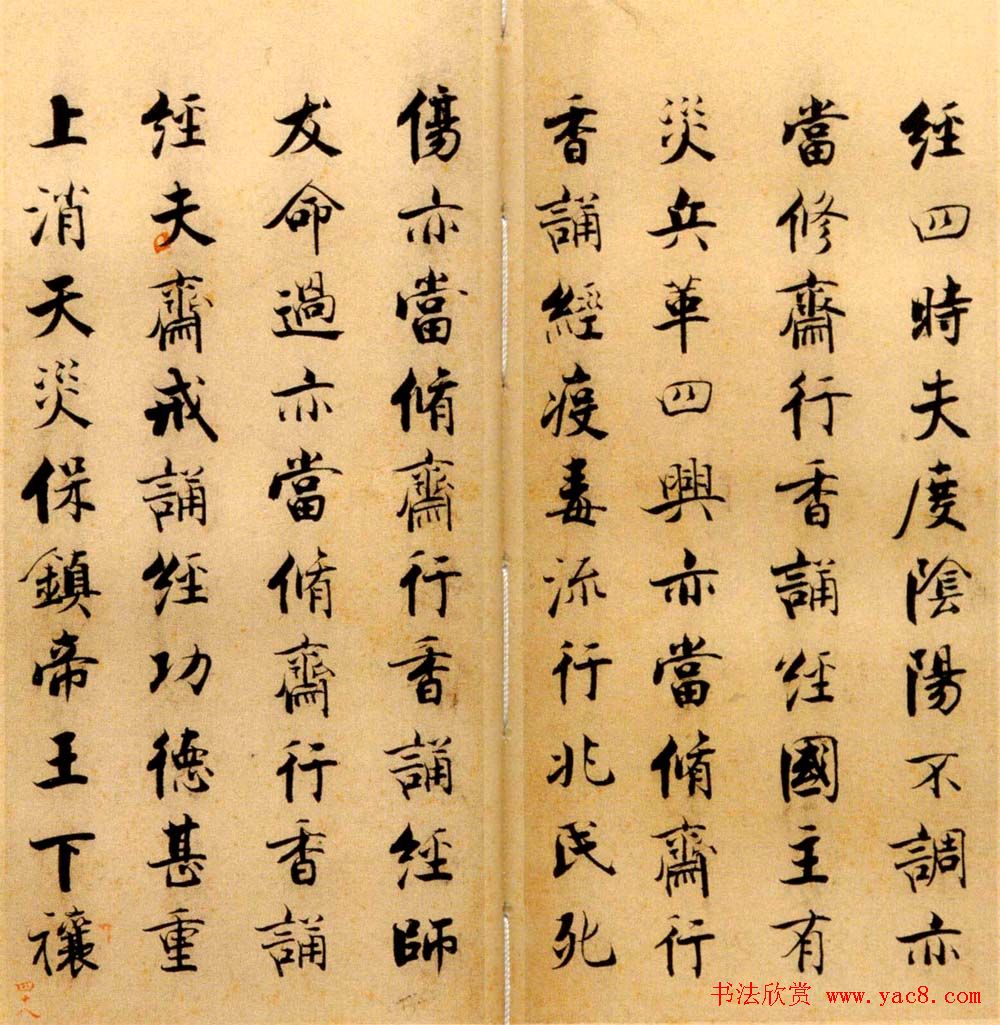 經四時失度陰陽不調亦
當修齋行香誦經國主有
災兵革四興亦當脩齋行
香誦經疫毒流行兆民死
傷亦當脩齋行香誦經師
友命過亦當脩齋行香誦
經夫齋戒誦經功德甚重
上消天災保鎮帝王下禳
四十八
书法欣赏 www.yac8.com